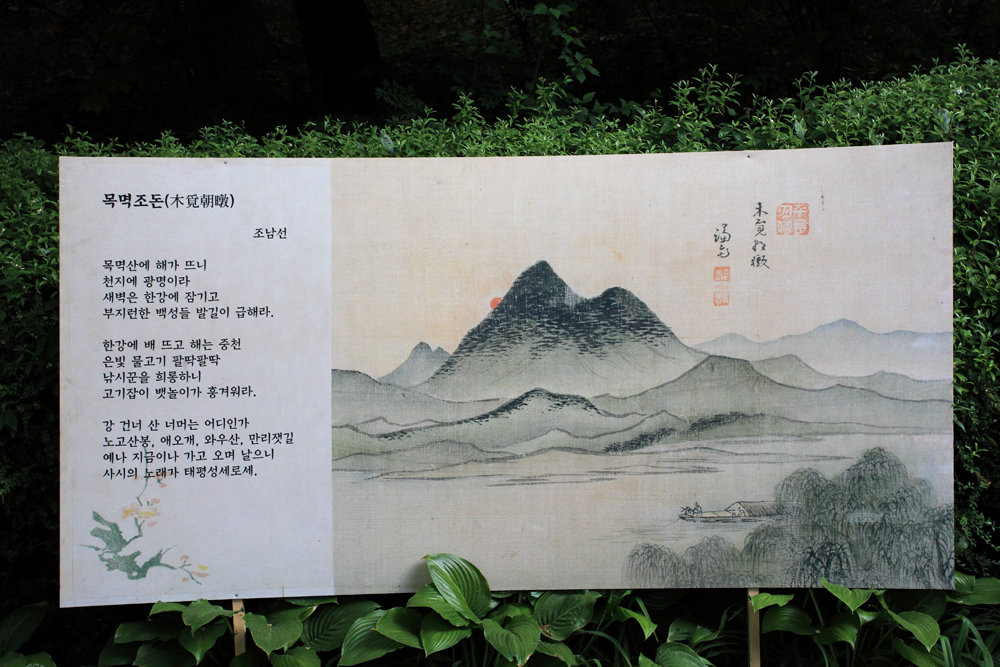 목멱조돈(木覓朝暾)
조남선
목멱산에 해가 뜨니
천지에 광명이라
새벽은 한강에 잠기고
부지런한 백성들 발길이 급해라.
한강에 배 뜨고 해는 중천
은빛 물고기 팔딱팔딱
낚시꾼을 희롱하니
고기잡이 뱃놀이가 흥겨워라.
강 건너 산 너머는 어디인가
노고산봉, 애오개, 와우산, 만리잿길
예나 지금이나 가고 오며 날으니
사시의 노래가 태평성세로세.
木覓朝暾